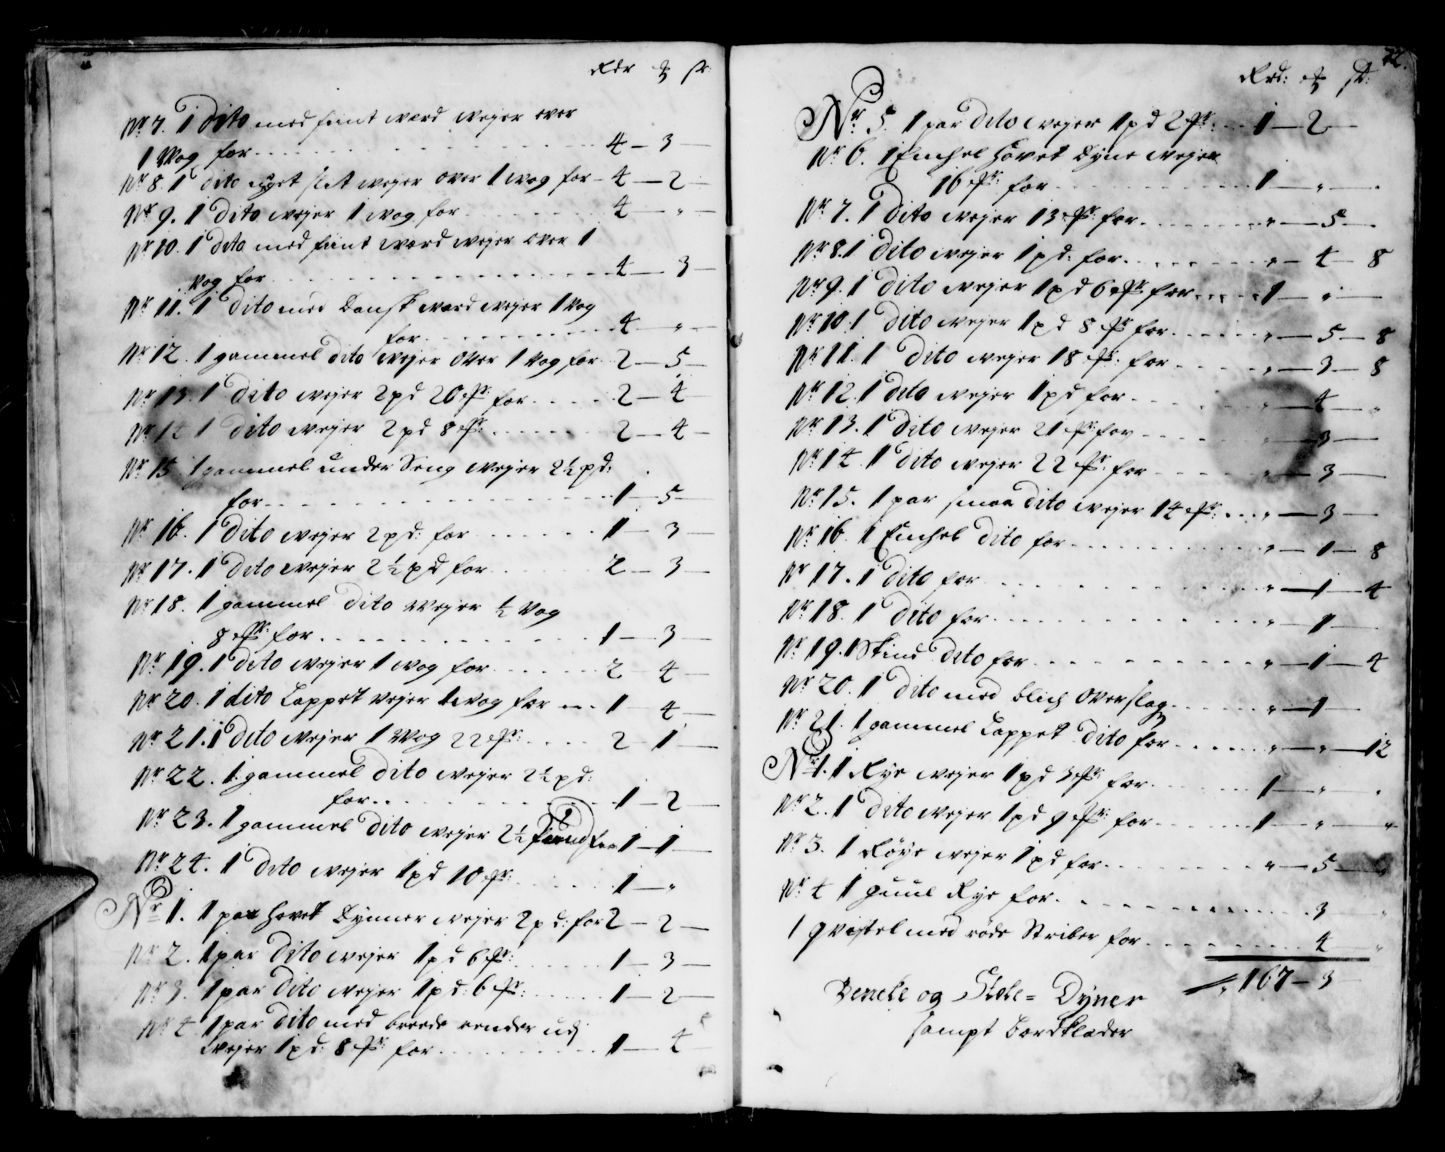 Rdr ꝣ st
Nr 7. 1 dito med fiint waar wejer over
1 Wog for 4 – 3 –
Nr 8. 1 dito slet wejer over 1 wog for 4 – 2
Nr 9. 1 dito wejer 1 wog for 4 – „
Nr 10. 1 dito med fiint waar wejer over 1
Wog for 4 – 3 –
Nr 11. 1 dito med Dansk waar wejer 1 Wog
for 4 „
Nr 12. 1 gammel dito wejer over 1 wog for 2 – 5 –
Nr 13. 1 dito wejer 2 pd 20 for 2 – 4
Nr 14 1 dito wejer 2 pd 8 2 – 4 –
Nr 15 1 gammel under Seng wejer 2½ pd:
for 1 – 5 –
Nr 16. 1 dito wejer 2 pd: for 1 – 3 –
Nr 17. 1 dito wejer 2½ pd for 2 – 3 –
Nr 18. 1 gammel dito wejer ½ Wog
8 for 1 – 3 –
Nr 19. 1 dito wejer 1 wog for 2 – 4 –
Nr 20. 1 dito Lappet wejer 1 wog for 1 – 4 –
Nr 21. 1 dito wejer 1 Wog 22 2 – 1 –
Nr 22. 1 gammel dito wejer 2½ pd:
for 1 – 2 –
Nr 23. 1 gammel dito wejer 2½ for 1 – 1 –
Nr 24. 1 dito wejer 1 pd 10 1 – „
Nr 1. 1 par Hovet Dynner wejer 2 pd: for 2 – 2 –
Nr 2. 1 par dito wejer 1 pd 6 1 – 3 –
Nr 3. 1 par dito wejer 1 pd: 6 1 – 2 –
Nr 4 1 par dito med breede render udj
wejer 1 pd: 8 for 1 – 4
72.
Rd: ꝣ st:
Nr 5. 1 par dito wejer 1 pd 2 1 – 2 –
Nr 6. 1 Enchel Hovet Dyne wejer
16 for 1 – „ – .
Nr 7. 1 dito wejer 13 for „ – 5 – .
Nr 8. 1 dito wejer 1 pd: for „ – 4 – 8
Nr 9. 1 dito wejer 1 pd 6 for 1 – „ –
Nr 10. 1 dito wejer 1 pd 8 for „ – 5 – 8
Nr 11. 1 dito wejer 18 for „ – 3 – 8
Nr 12. 1 dito wejer 1 pd for „ – 4 – „
Nr 13. 1 dito wejer 21 for „ – 3 –
Nr 14. 1 dito wejer 22 for „ – 3 –
Nr 15. 1 par smaa dito wejer 14 „ – 3 –
Nr 16. 1 Enchel dito for „ – 1 – 8
Nr 17. 1 dito for „ – 1 – 4
Nr 18. 1 dito for „ – 1 –
Nr 19. 1 Skind dito for „ – 1 – 4
Nr 20. 1 dito med blich Overslag „ – 1 –
Nr 21. 1 gammel Lappet dito for „ – „ – 12
Nr 1. 1 Rye wejer 1 pd 3 for 1 – „ – .
Nr 2. 1 dito wejer 1 pd 9 for 1 – „ – „
Nr 3. 1 Røye wejer 1 pd for „ – 5 – „
Nr 4 1 guul Rye for 3 „
1 qvistel med røde Striber for 4 „
167 – 3
Bencke og Stole= Dyner
sampt Bordklæder